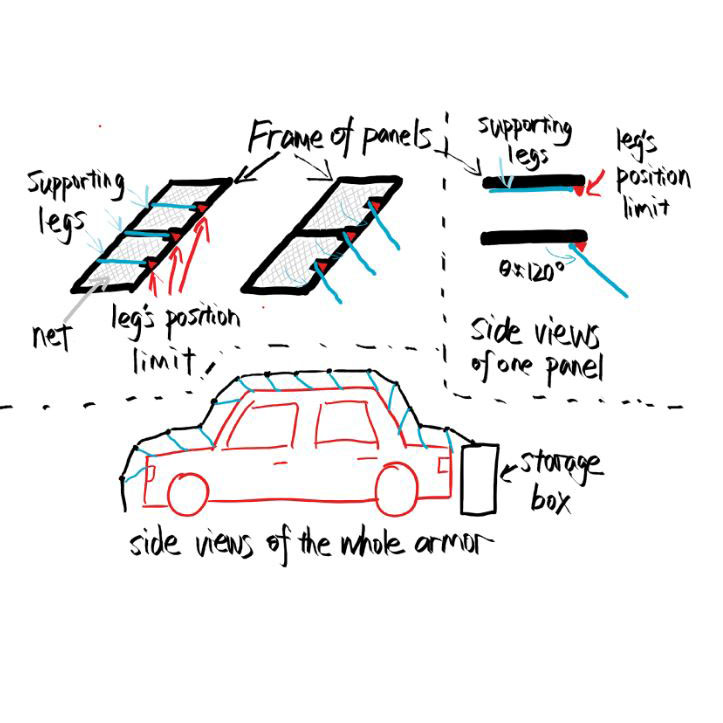 Frame of panels
Supporting
legs
net
leg's position
limit
supporting
legs
leg's
position
limit
θ≈120°
side views
of one panel
storage
box
side views of the whole armor